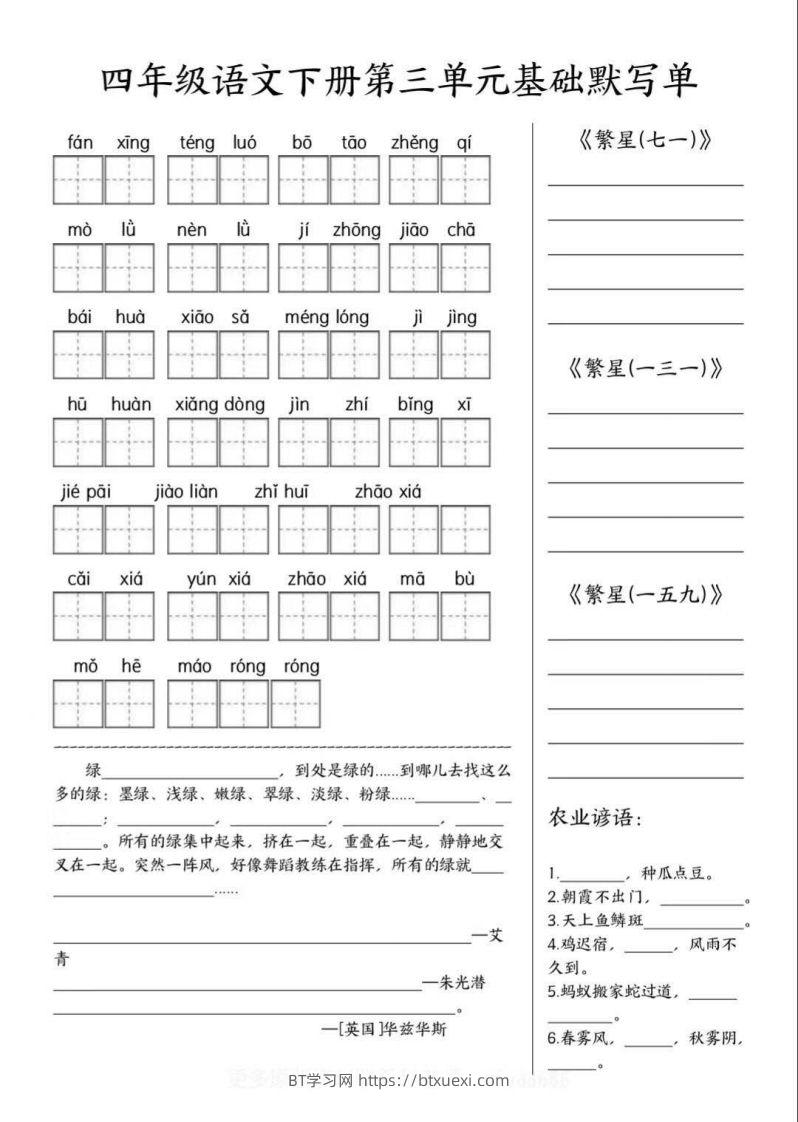 四年级语文下册第三单元基础默写单
fán xīng téng luó bō tāo zhěng qí
mò lǜ nèn lǜ jí zhōng jiāo chā
bái huà xiāo sǎ méng lóng jì jìng
hū huàn xiǎng dòng jìn zhí bǐng xī
jié pāi jiào liàn zhǐ huī zhāo xiá
cǎi xiá yún xiá zhāo xiá mā bù
mǒ hē máo róng róng
绿____________________，到处是绿的……到哪儿去找这么
多的绿：墨绿、浅绿、嫩绿、翠绿、淡绿、粉绿……________、__
______；____________，____________，____________，______
______。所有的绿集中起来，挤在一起，重叠在一起，静静地交
叉在一起。突然一阵风，好像舞蹈教练在指挥，所有的绿就____
____________________……
____________________—艾
青
____________________—朱光潜
____________________。
—[英国]华兹华斯
《繁星(七一)》
《繁星(一三一)》
《繁星(一五九)》
农业谚语：
1.________，种瓜点豆。
2.朝霞不出门，__________。
3.天上鱼鳞斑____________。
4.鸡迟宿，______，风雨不
久到。
5.蚂蚁搬家蛇过道，______
________。
6.春雾风，______，秋雾阴，
______。
BT学习网 https://btxuexi.com